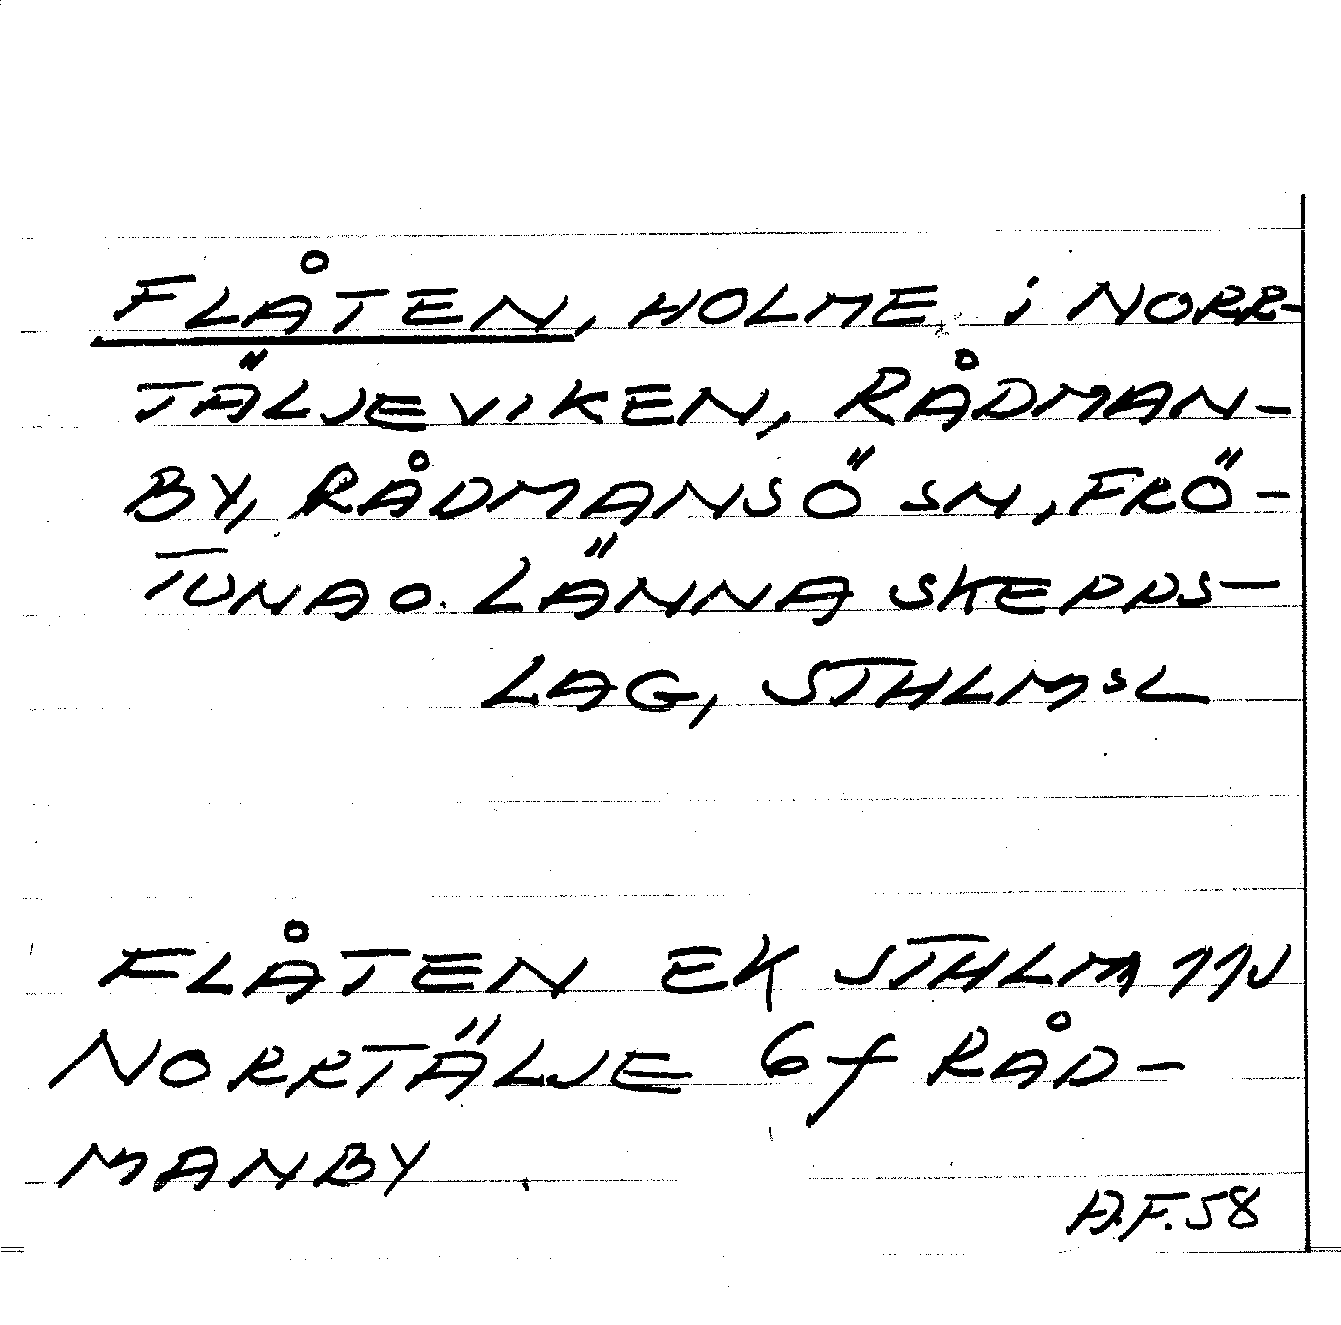 FLÅTEN, HOLME i NORR-
TÄLJEVIKEN, RÅDMAN-
BY, RÅDMANSÖ SN, FRÖ-
TUNA O. LÄNNA SKEPPS-
LAG, STHLMSL
FLÅTEN EK STHLM 11J
NORRTÄLJE 6f RÅD-
MANBY
A.F. 58